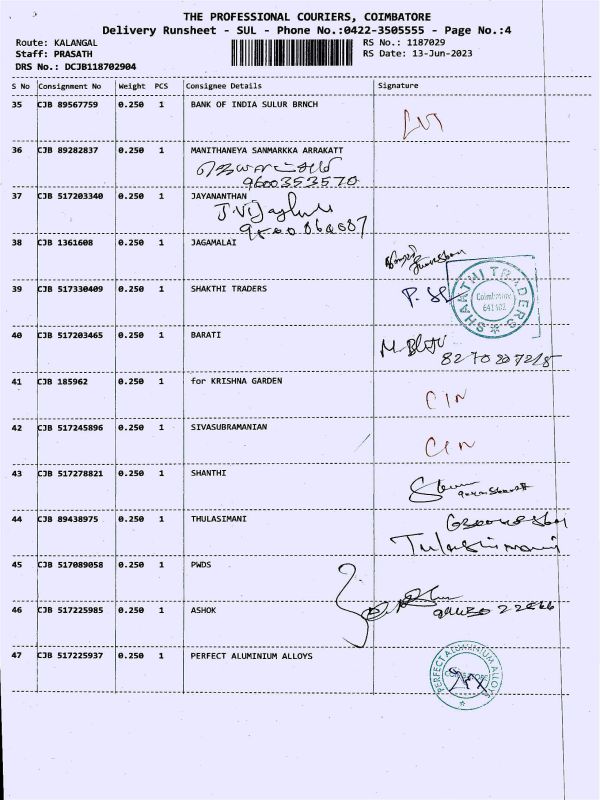 THE PROFESSIONAL COURIERS, COIMBATORE
Delivery Runsheet - SUL - Phone No.:0422-3505555 - Page No.:4
Route: KALANGAL RS No.: 1187029
Staff: PRASATH RS Date: 13-Jun-2023
DRS No.: DCJB118702904
S No Consignment No Weight PCS Consignee Details Signature
35 CJB 89567759 0.250 1 BANK OF INDIA SULUR BRNCH
36 CJB 89282837 0.250 1 MANITHANEYA SANMARKKA ARRAKATT
9600353570
37 CJB 517203340 0.250 1 JAYANANTHAN
38 CJB 1361608 0.250 1 JAGAMALAI
39 CJB 517330409 0.250 1 SHAKTHI TRADERS
SHAKTHI TRADERS
Coimbatore
40 CJB 517203465 0.250 1 BARATI
41 CJB 185962 0.250 1 for KRISHNA GARDEN
CIN
42 CJB 517245896 0.250 1 SIVASUBRAMANIAN
CIN
43 CJB 517278821 0.250 1 SHANTHI
44 CJB 89438975 0.250 1 THULASIMANI
45 CJB 517089058 0.250 1 PWDS
46 CJB 517225985 0.250 1 ASHOK
47 CJB 517225937 0.250 1 PERFECT ALUMINIUM ALLOYS
PERFECT ALUMINIUM ALLOYS